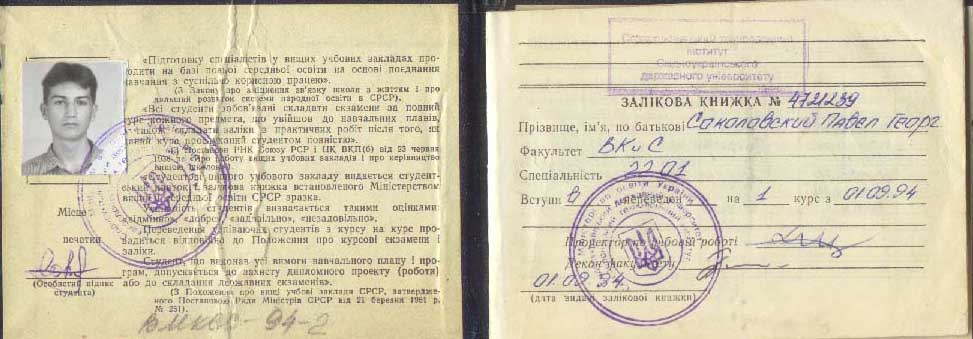 «Підготовку спеціалістів у вищих учбових закладах про-
водити на базі повної середньої освіти на основі поєднання
навчання з суспільно корисною працею».
(З Закону про зміцнення зв'язку школи з життям і про
дальший розвиток системи народної освіти в СРСР).
«Всі студенти зобов'язані складати екзамени за повний
курс кожного предмета, що увійшов до навчальних планів,
а також складати заліки з практичних робіт після того, як
даний курс прослуханий студентом повністю».
(З Постанови РНК Союзу РСР і ЦК ВКП(б) від 23 червня
1936 р. «Про роботу вищих учбових закладів і про керівництво
вищою школою»).
«Студентові вищого учбового закладу видається студент-
ський квиток і залікова книжка встановленого Міністерством
вищої і середньої освіти СРСР зразка.
Успішність студентів визначається такими оцінками:
«відмінно», «добре», «задовільно», «незадовільно».
Переведення встигаючих студентів з курсу на курс про-
вадиться відповідно до Положення про курсові екзамени і
заліки.
Студент, що виконав усі вимоги навчального плану і про-
грам, допускається до захисту дипломного проекту (роботи)
або до складання державних екзаменів».
(З Положення про вищі учбові заклади СРСР, затвердже-
ного Постановою Ради Міністрів СРСР від 21 березня 1961 р.
№ 251).
Місце
печатки
(Особистий підпис
студента)
ВМКСС-94-2
інститут
Східноукраїнського
державного університету
ЗАЛІКОВА КНИЖКА № 4721239
Прізвище, ім'я, по батькові Соколовский Павел Георг
Факультет ВКиС
Спеціальність 22 01
Вступив переведен на 1 курс з 01.09.94
Проректор по учбовій роботі
Декан факультету
01.09.94.
(дата видачі залікової книжки)